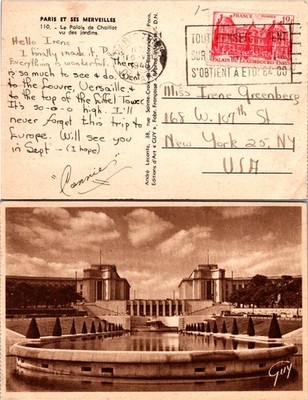 PARIS ET SES MERVEILLES
110. - Le Palais de Chaillot
vu des Jardins.
Hello Irene
I finally made it,
Everything is wonderful. There
is so much to see & do. Went
to the Louvre, Versailles &
to the top of the Eiffel Tower
It's so-o-o high. I'll
never forget this trip to
Europe. Will see you
in Sept - (I hope)
"Connie"
André Leconte, 38, rue Sainte-Croix-de-la-Bretonnerie, Paris.
Editions d'Art
1-
TOUT
SUR
S'OBTIENT A
FRANCE POSTES
19F
PALAIS DU LUXEMBOURG
Miss Irene Greenberg
168 W. 107th St
New York 25, NY
USA
Guy